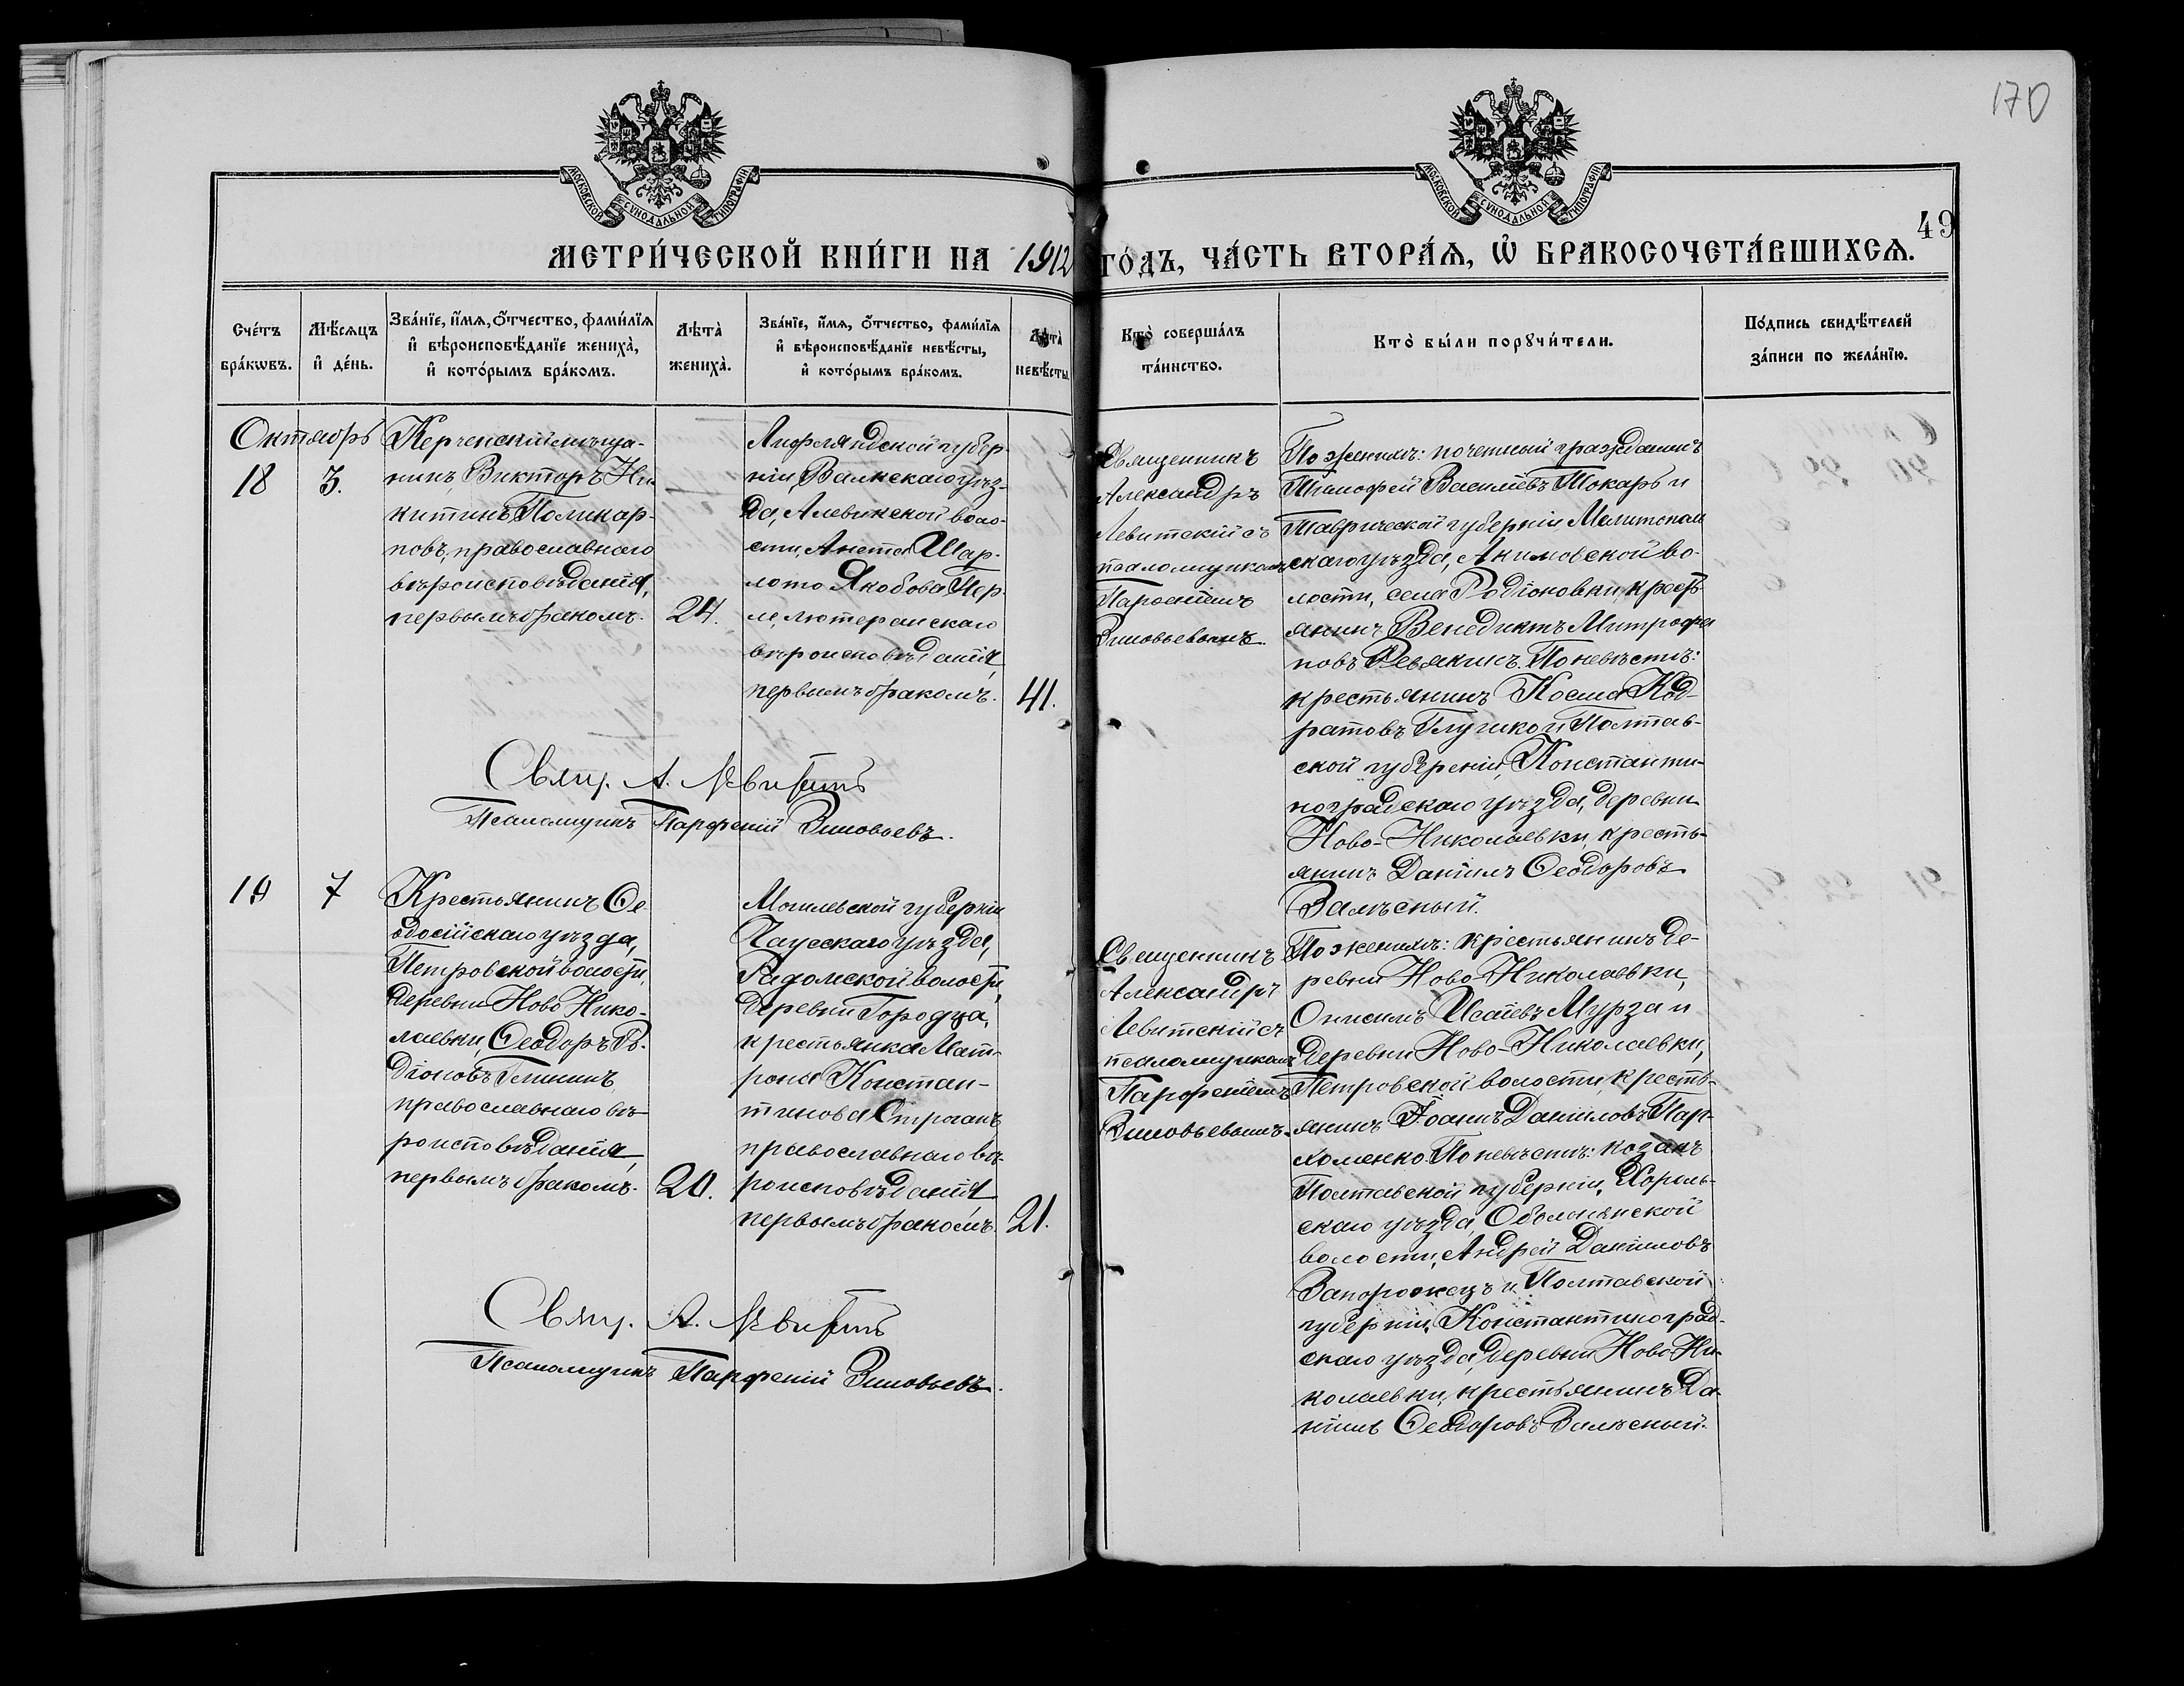 170
МОСКОВСКОЙ СѴНОДАЛЬНОЙ ТИПОГРАФІИ
МОСКОВСКОЙ СѴНОДАЛЬНОЙ ТИПОГРАФІИ
49
МЕТРИ́ЧЕСКОЙ КНИ́ГИ НА 1912 ГО́ДЪ, ЧА́СТЬ ВТОРА́Ѧ, Ѡ҆ БРАКОСОЧЕТА́ВШИХСѦ.
Сче́тъ
бра́кѡвъ.
Мѣ́сѧцъ
и҆ де́нь.
Зва́нїе, и҆́мѧ, ѻ҆́тчество, фами́лїѧ
и҆ вѣроисповѣ́данїе жениха̀,
и҆ кото́рымъ бра́комъ.
Лѣта̀
жениха̀.
Зва́нїе, и҆́мѧ, ѻ҆́тчество, фами́лїѧ
и҆ вѣроисповѣ́данїе невѣ́сты,
и҆ кото́рымъ бра́комъ.
Лѣта̀
невѣ́сты.
Кто̀ соверша́лъ
та́инство.
Кто̀ бы́ли порꙋчи́тели.
По́дпись свидѣ́телей
за́писи по жела́нїю.
Октябрь
18
3.
Керченскій мѣща-
нинъ, Викторъ Ни-
китинъ Поликар-
повъ, православнаго
вѣроисповѣданія,
первымъ бракомъ.
24.
Лифляндской губер-
ніи, Валкскаго уѣз-
да, волo-
сти, Анета Шар-
лото Якобова Пер-
ле, лютеранскаго
вѣроисповѣданія,
первымъ бракомъ.
41.
Священникъ
Александръ
Левитскій съ
псаломщикомъ
Парѳеніемъ
Зиновьевымъ.
По женихѣ: почетный гражданинъ
Тимофей Василіевъ Токарь и
Таврической губерніи Мелитополь
скаго уѣзда, Акимовской во-
лости, села Родіоновки, кресть
янинъ Венедиктъ Митрофа
новъ Ревякинъ. По невѣстѣ:
крестьянинъ Косма Код-
ратовъ и Полтав-
ской губерніи, Константи-
ноградскаго уѣзда, деревни
Ново-Николаевки, кресть-
янинъ Даніилъ Ѳеодоровъ
Залѣсный.
Свящ. А. Левитскій
Псаломщикъ Парфеній Зиновьевъ.
19
7
Крестьянинъ Ѳе
одосійскаго уѣзда,
Петровской волости,
деревни Ново-Нико-
лаевки, Ѳеодоръ Ро-
діоновъ Глининъ,
православнаго вѣ-
роисповѣданія,
первымъ бракомъ.
20.
Могилевской губерніи
Чаусскаго уѣзда,
Радомской волости,
деревни Городца,
крестьянка Мат-
рона Констан-
тинова
православнаго вѣ-
роисповѣданія
первымъ бракомъ.
21.
Священникъ
Александръ
Левитскій съ
псаломщикомъ
Парфеніемъ
Зиновьевымъ.
По женихѣ: крестьянинъ де-
ревни Ново-Николаевки,
Онисимъ Исаіевъ Мурза и
деревни Ново-Николаевки,
Петровской волости, кресть-
янинъ Іоаннъ Даніиловъ Пар-
хоменко. По невѣстѣ: козакъ
Полтавской губерніи, Хороль-
скаго уѣзда, Оболонянской
волости, Андрей Даніиловъ
Запорожецъ и Полтавской
губерніи, Константиноград-
скаго уѣзда, деревни Ново-Ни-
колаевки, крестьянинъ Да-
ніилъ Ѳеодоровъ Залѣсный.
Свящ. А. Левитскій
Псаломщикъ Парфеній Зиновьевъ.